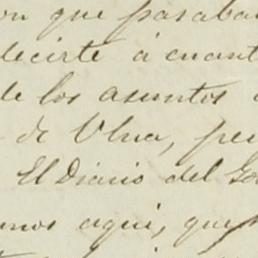 on que pasaba
decirte á cuant
de los asuntos
de Ulua, per
El Diario del Go
mos aqui, que